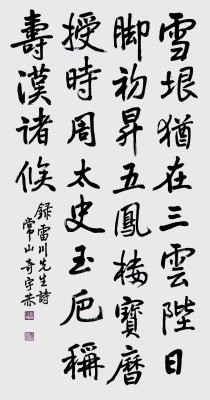 雪垠猶在三雲陛日
脚初昇五鳳樓寶曆
授時周太史玉卮稱
壽漢諸侯
錄雷川先生詩
常山奇宇赤